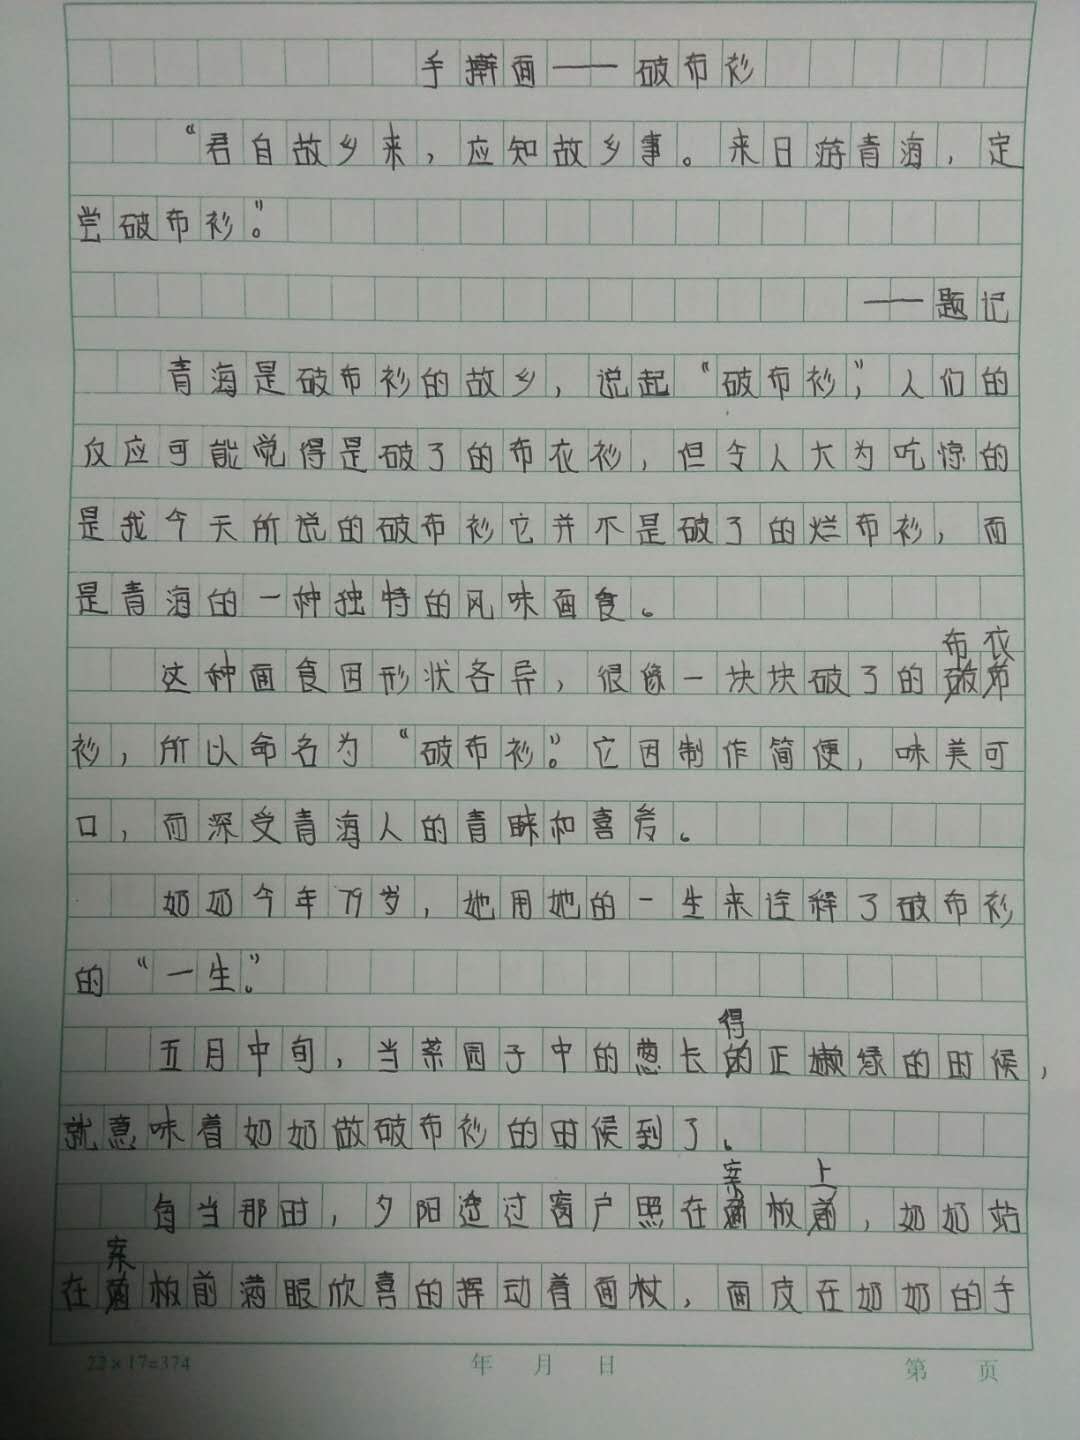 手擀面——破布衫
“君自故乡来，应知故乡事。来日游青海，定
尝破布衫”。
——题记
青海是破布衫的故乡，说起“破布衫”，人们的
反应可能觉得是破了的布衣衫，但令人大为吃惊的
是我今天所说的破布衫它并不是破了的烂布衫，而
是青海的一种独特的风味面食。
这种面食因形状各异，很像一块块破了的布衣
衫，所以命名为“破布衫”。它因制作简便，味美可
口，而深受青海人的青睐和喜爱。
奶奶今年79岁，她用她的一生来诠释了破布衫
的“一生”。
五月中旬，当菜园子中的葱长得正嫩绿的时候，
就意味着奶奶做破布衫的时候到了。
每当那时，夕阳透过窗户照在案板上，奶奶站
在案板前满眼欣喜的挥动着面杖，面皮在奶奶的手
22×17=374 年 月 日 第 页